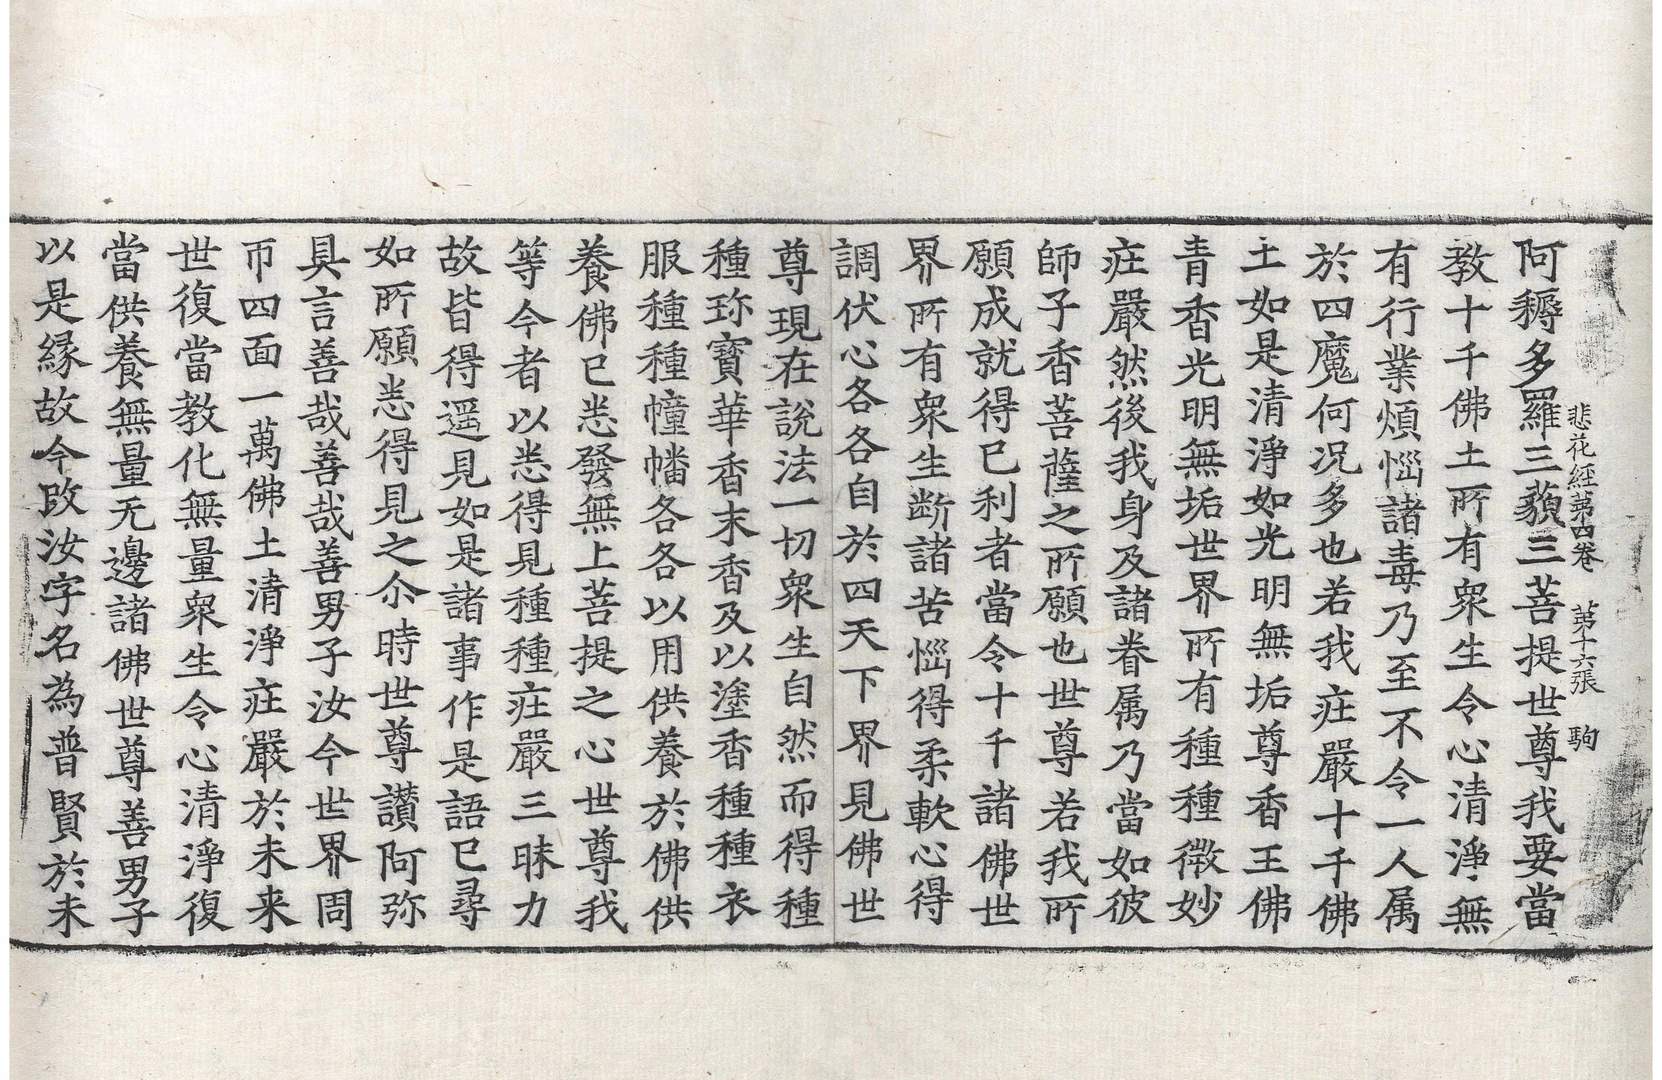 悲花經第四卷　第十六張　駒
阿耨多羅三藐三菩提世尊我要當
教十千佛土所有衆生令心清淨無
有行業煩惱諸毒乃至不令一人属
於四魔何况多也若我疪嚴十千佛
土如是清淨如光明無垢尊香王佛
青香光明無垢世界所有種種微妙
疪嚴然後我身及諸眷属乃當如彼
師子香菩薩之所願也世尊若我所
願成就得已利者當令十千諸佛世
界所有衆生断諸苦惱得柔軟心得
調伏心各各自於四天下界見佛世
尊現在說法一切衆生自然而得種
種珎寶華香末香及以塗香種種衣
服種種幢幡各各以用供養於佛供
養佛已悉發無上菩提之心世尊我
等今者以悉得見種種疪嚴三昧力
故皆得遥見如是諸事作是語已尋
如所願悉得見之尒時世尊讃阿弥
具言善哉善哉善男子汝今世界周
帀四面一萬佛土清淨疪嚴於未来
世復當教化無量衆生令心清淨復
當供養無量无邊諸佛世尊善男子
以是縁故今改汝字名為普賢於未